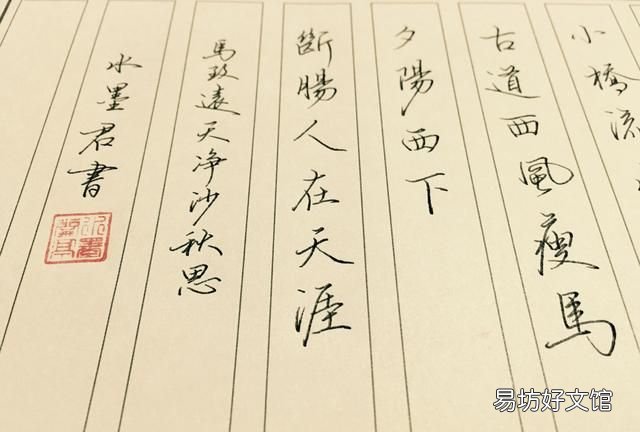 小橋流
古道西風瘦馬
夕陽西下
斷腸人在天涯
馬致遠天净沙秋思
水墨君書
易坊好文馆